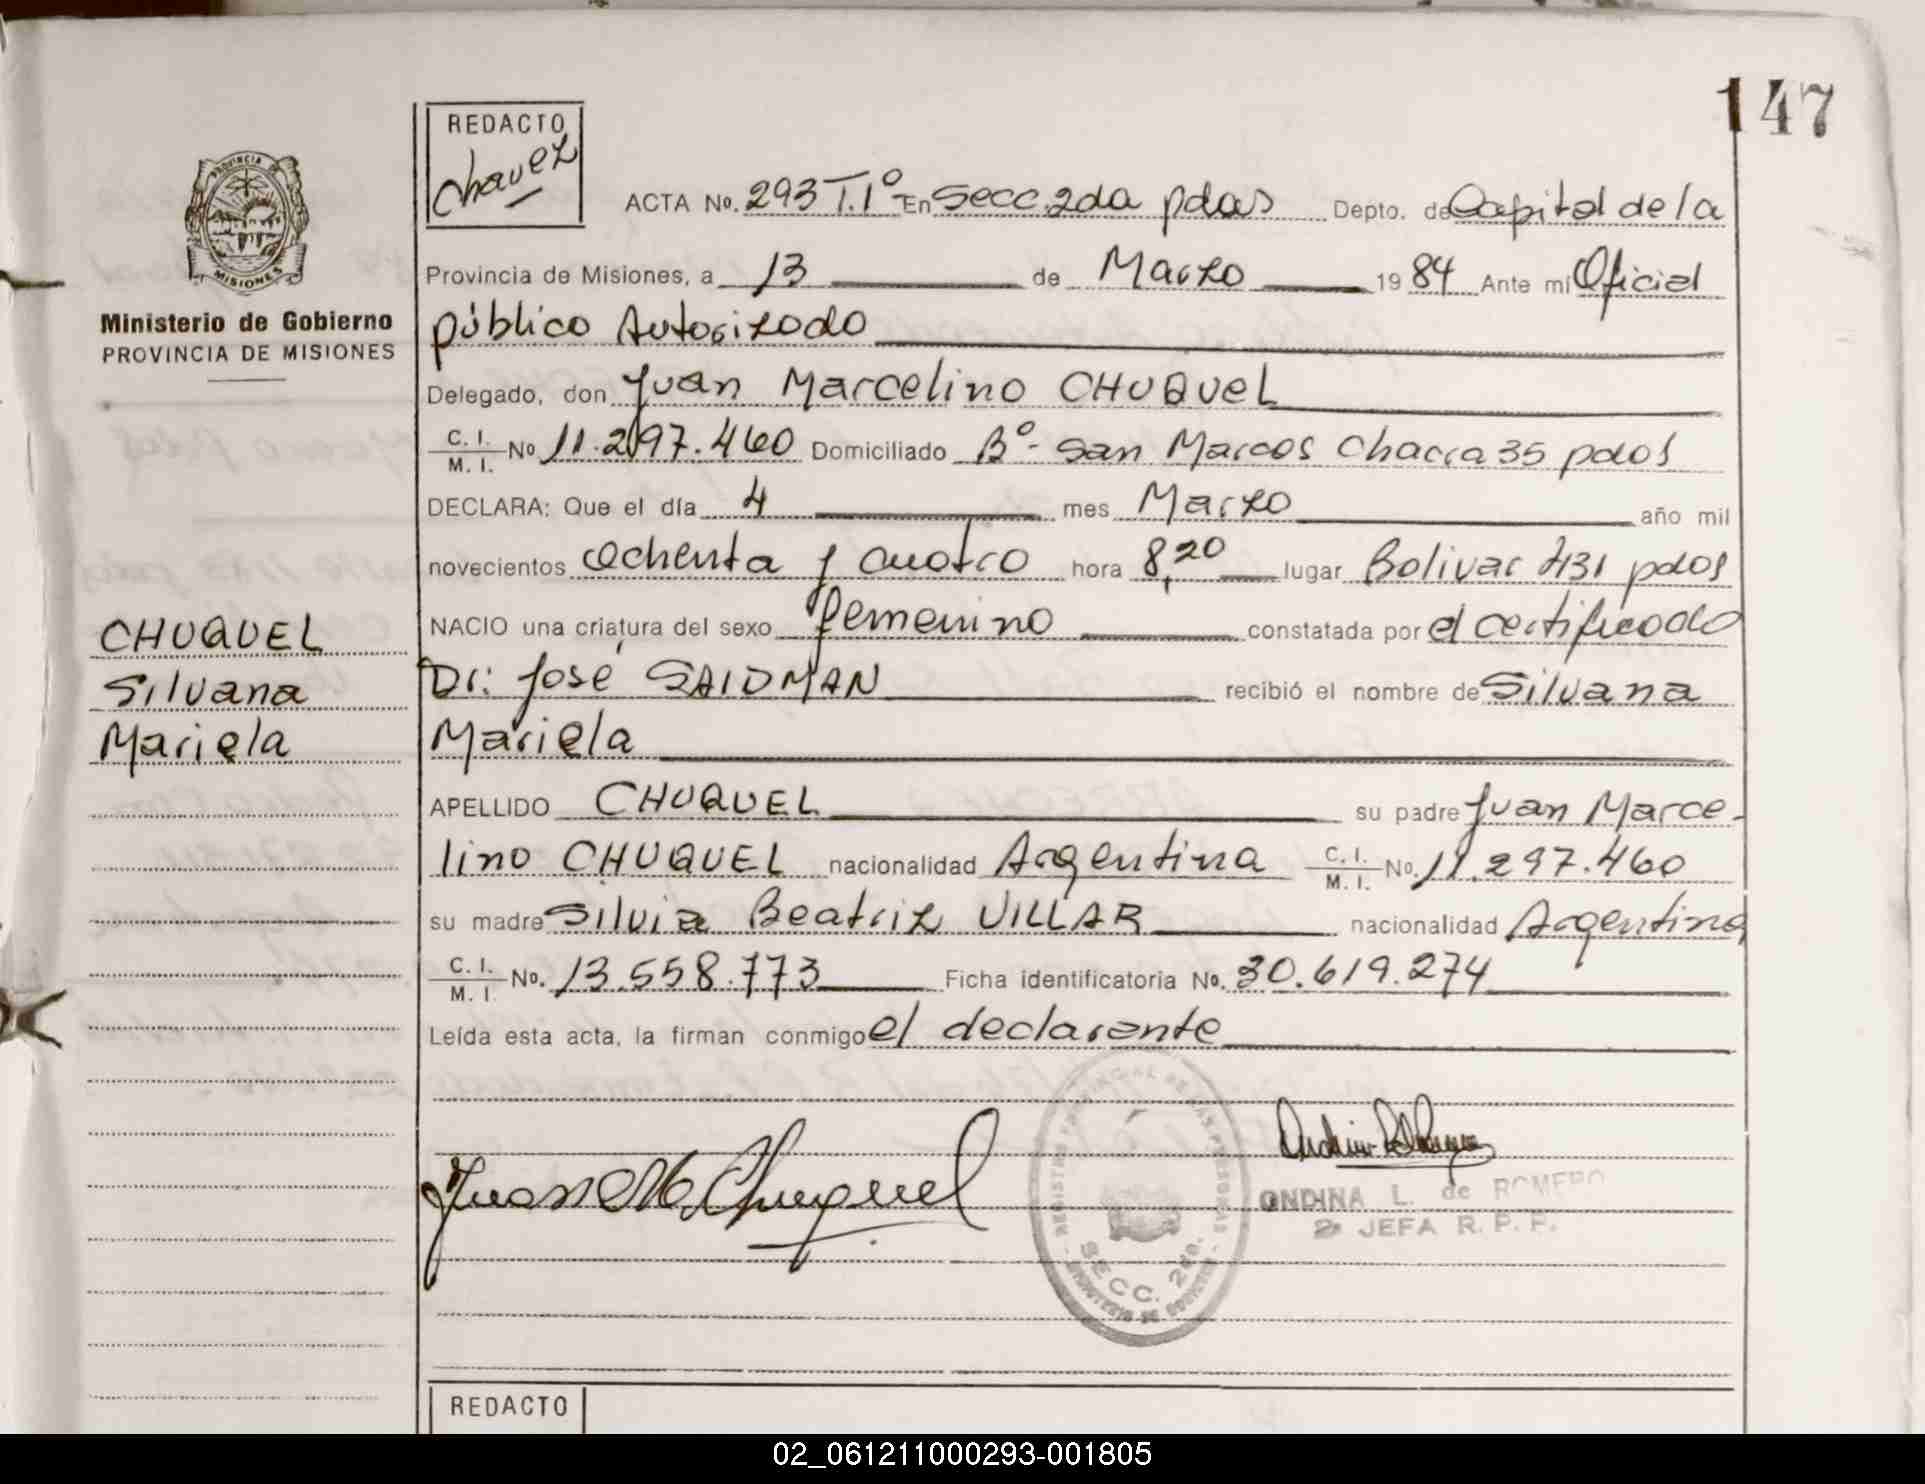 147
REDACTO
Chavez
ACTA No. 293 T.1º En Secc. 2da pdas Depto. de Capital de la
PROVINCIA DE
MISIONES
Ministerio de Gobierno
PROVINCIA DE MISIONES
Provincia de Misiones, a 13 de Marzo 1984 Ante mi Oficial
público Autorizado
Delegado, don Juan Marcelino CHUQUEL
C. I. M. I. No 11.297.460 Domiciliado Bº San Marcos Chacra 35 pdas
DECLARA: Que el día 4 mes Marzo año mil
novecientos ochenta y cuatro hora 8,20 lugar Bolivar 2131 pdas
NACIO una criatura del sexo femenino constatada por el certificado
CHUQUEL
Silvana
Mariela
Dr. José SAIDMAN recibió el nombre de Silvana
Mariela
APELLIDO CHUQUEL su padre Juan Marce-
lino CHUQUEL nacionalidad Argentina C. I. M. I. No. 11.297.460
su madre Silvia Beatriz VILLAR nacionalidad Argentina
C. I. M. I. No. 13.558.773 Ficha identificatoria No. 30.619.274
Leída esta acta, la firman conmigo el declarante
Juan M. Chuquel
REGISTRO PROVINCIAL DE LAS PERSONAS
SECC. 2da.
MINISTERIO DE GOBIERNO
ONDINA L. de ROMERO
2ª JEFA R. P. P.
REDACTO
02_061211000293-001805